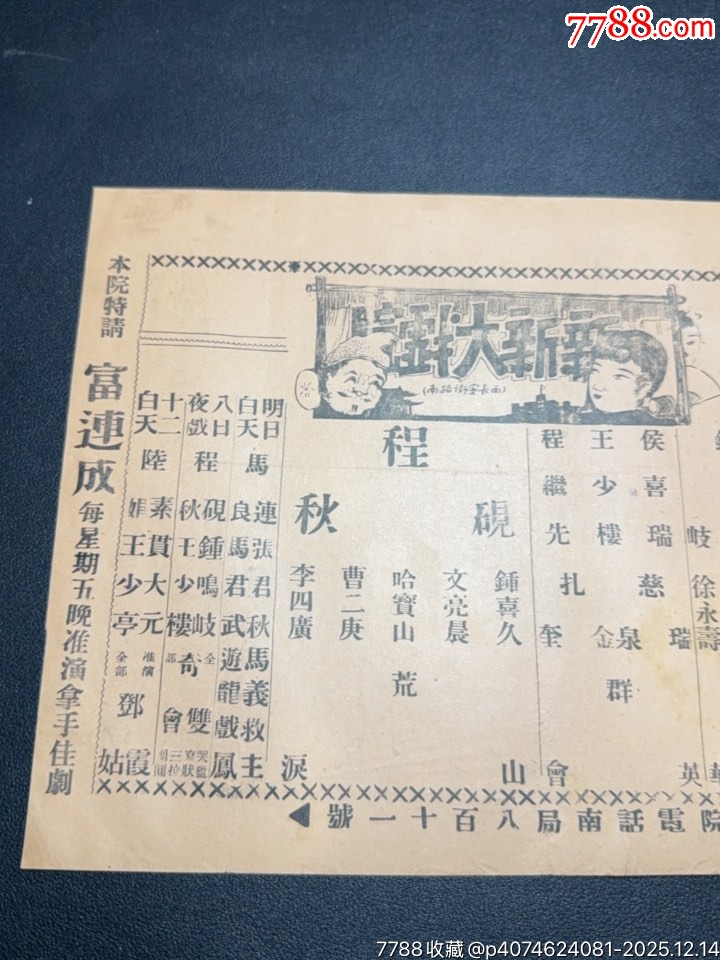 7788.com
新新大戲院
(西長安街路南)
岐
徐永壽
侯喜瑞
慈瑞泉
王少樓
程繼先
扎金奎
群英會
程硯秋
鍾喜久
文亮晨
哈寶山
曹二庚
李四廣
荒山淚
明日白天
馬連良
張君秋
馬君武
馬義救主
遊龍戲鳳
八日夜戲
程硯秋
鍾鳴岐
王少樓
全部
奇雙會
哭監
寫狀
三拉
團圓
十二白天
陸素娟
貫大元
王少亭
准演全部
鄧霞姑
本院特請
富連成
每星期五晚准演拿手佳劇
院電話南局八百十一號
7788收藏@p4074624081-2025.12.14